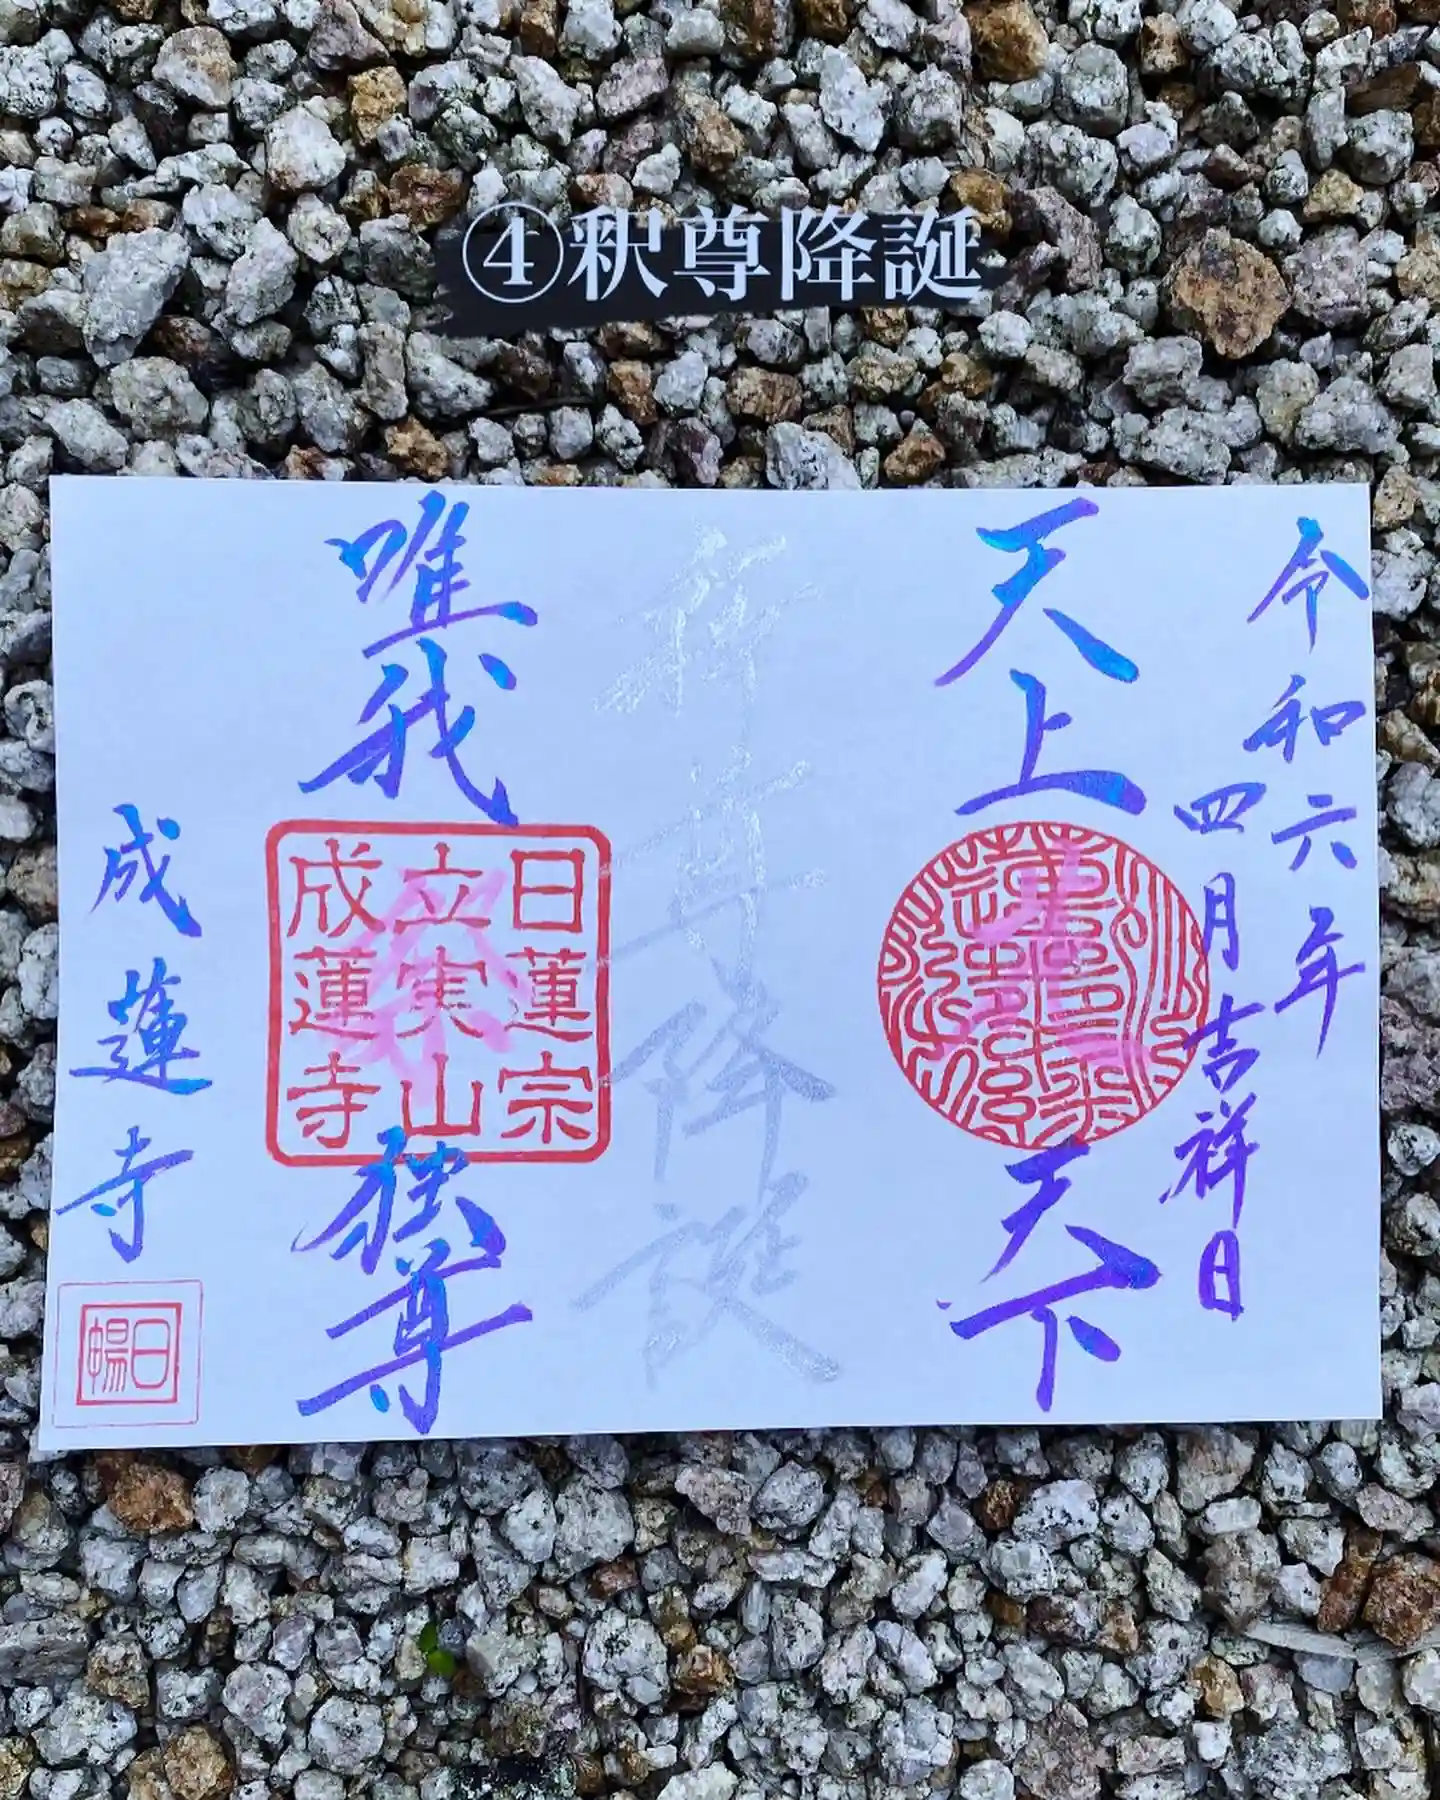 ④釈尊降誕
令和六年
四月吉祥日
天上天下
釈尊降誕
唯我独尊
日蓮宗
立実山
成蓮寺
成蓮寺